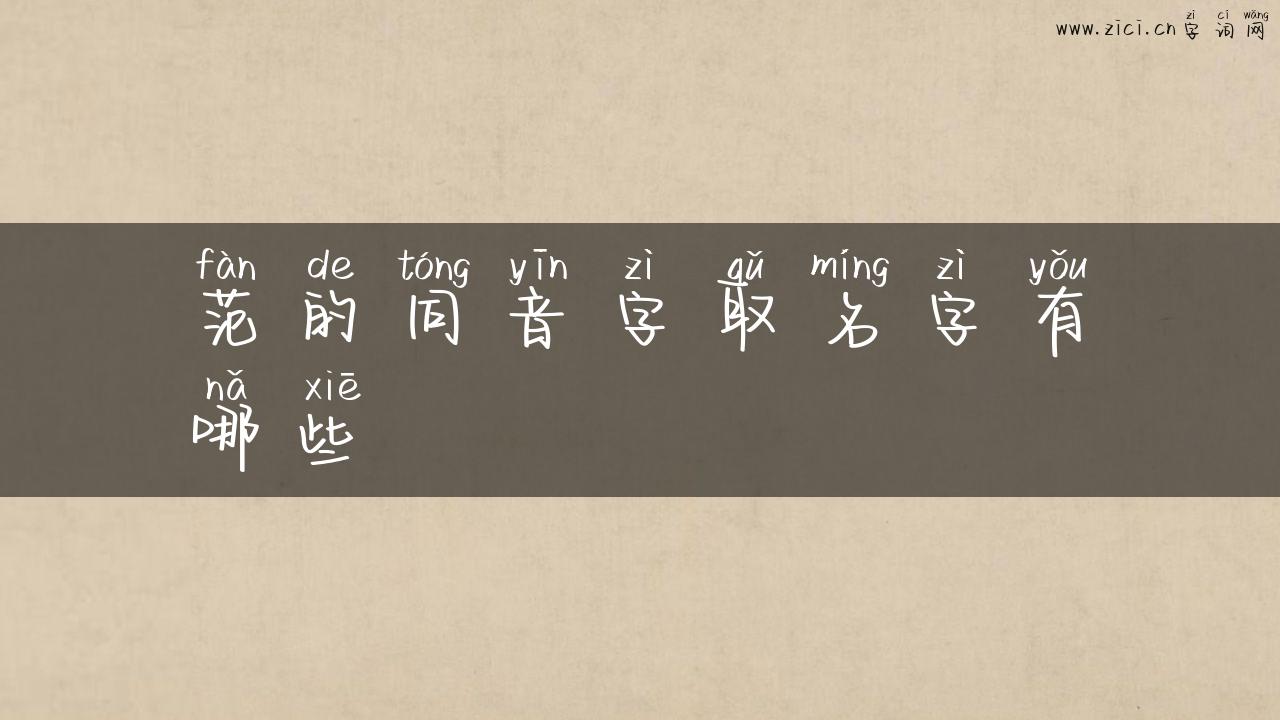 zì cí wǎng
www.zici.cn 字词网
fàn de tóng yīn zì qǔ míng zì yǒu
范的同音字取名字有
nǎ xiē
哪些